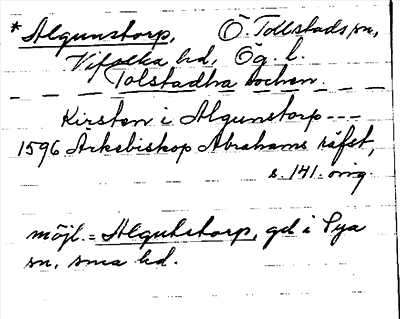 *Algunstorp, Ö. Tollstads sn,
Vifolka hd, Ög. l.
Tolstadha sochen.
Kirsten i Algunstorp ---
1596 Ärkebiskop Abrahams räfst,
s. 141. orig.
möjl. = Algutstorp, gd i Sya
sn, sma hd.